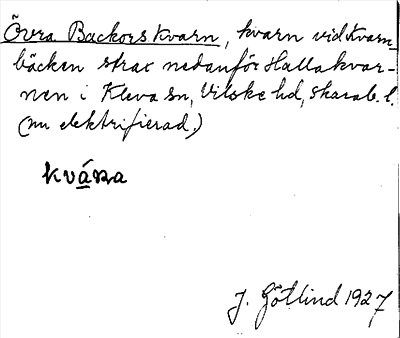 Övra Backors Kvarn, kvarn vid Kvarn-
bäcken strax nedanför Hallakvar-
nen i Kleva sn, Vilske hd, Skarab. l.
(nu elektrifierad.)
kvána
J. Götlind 1927